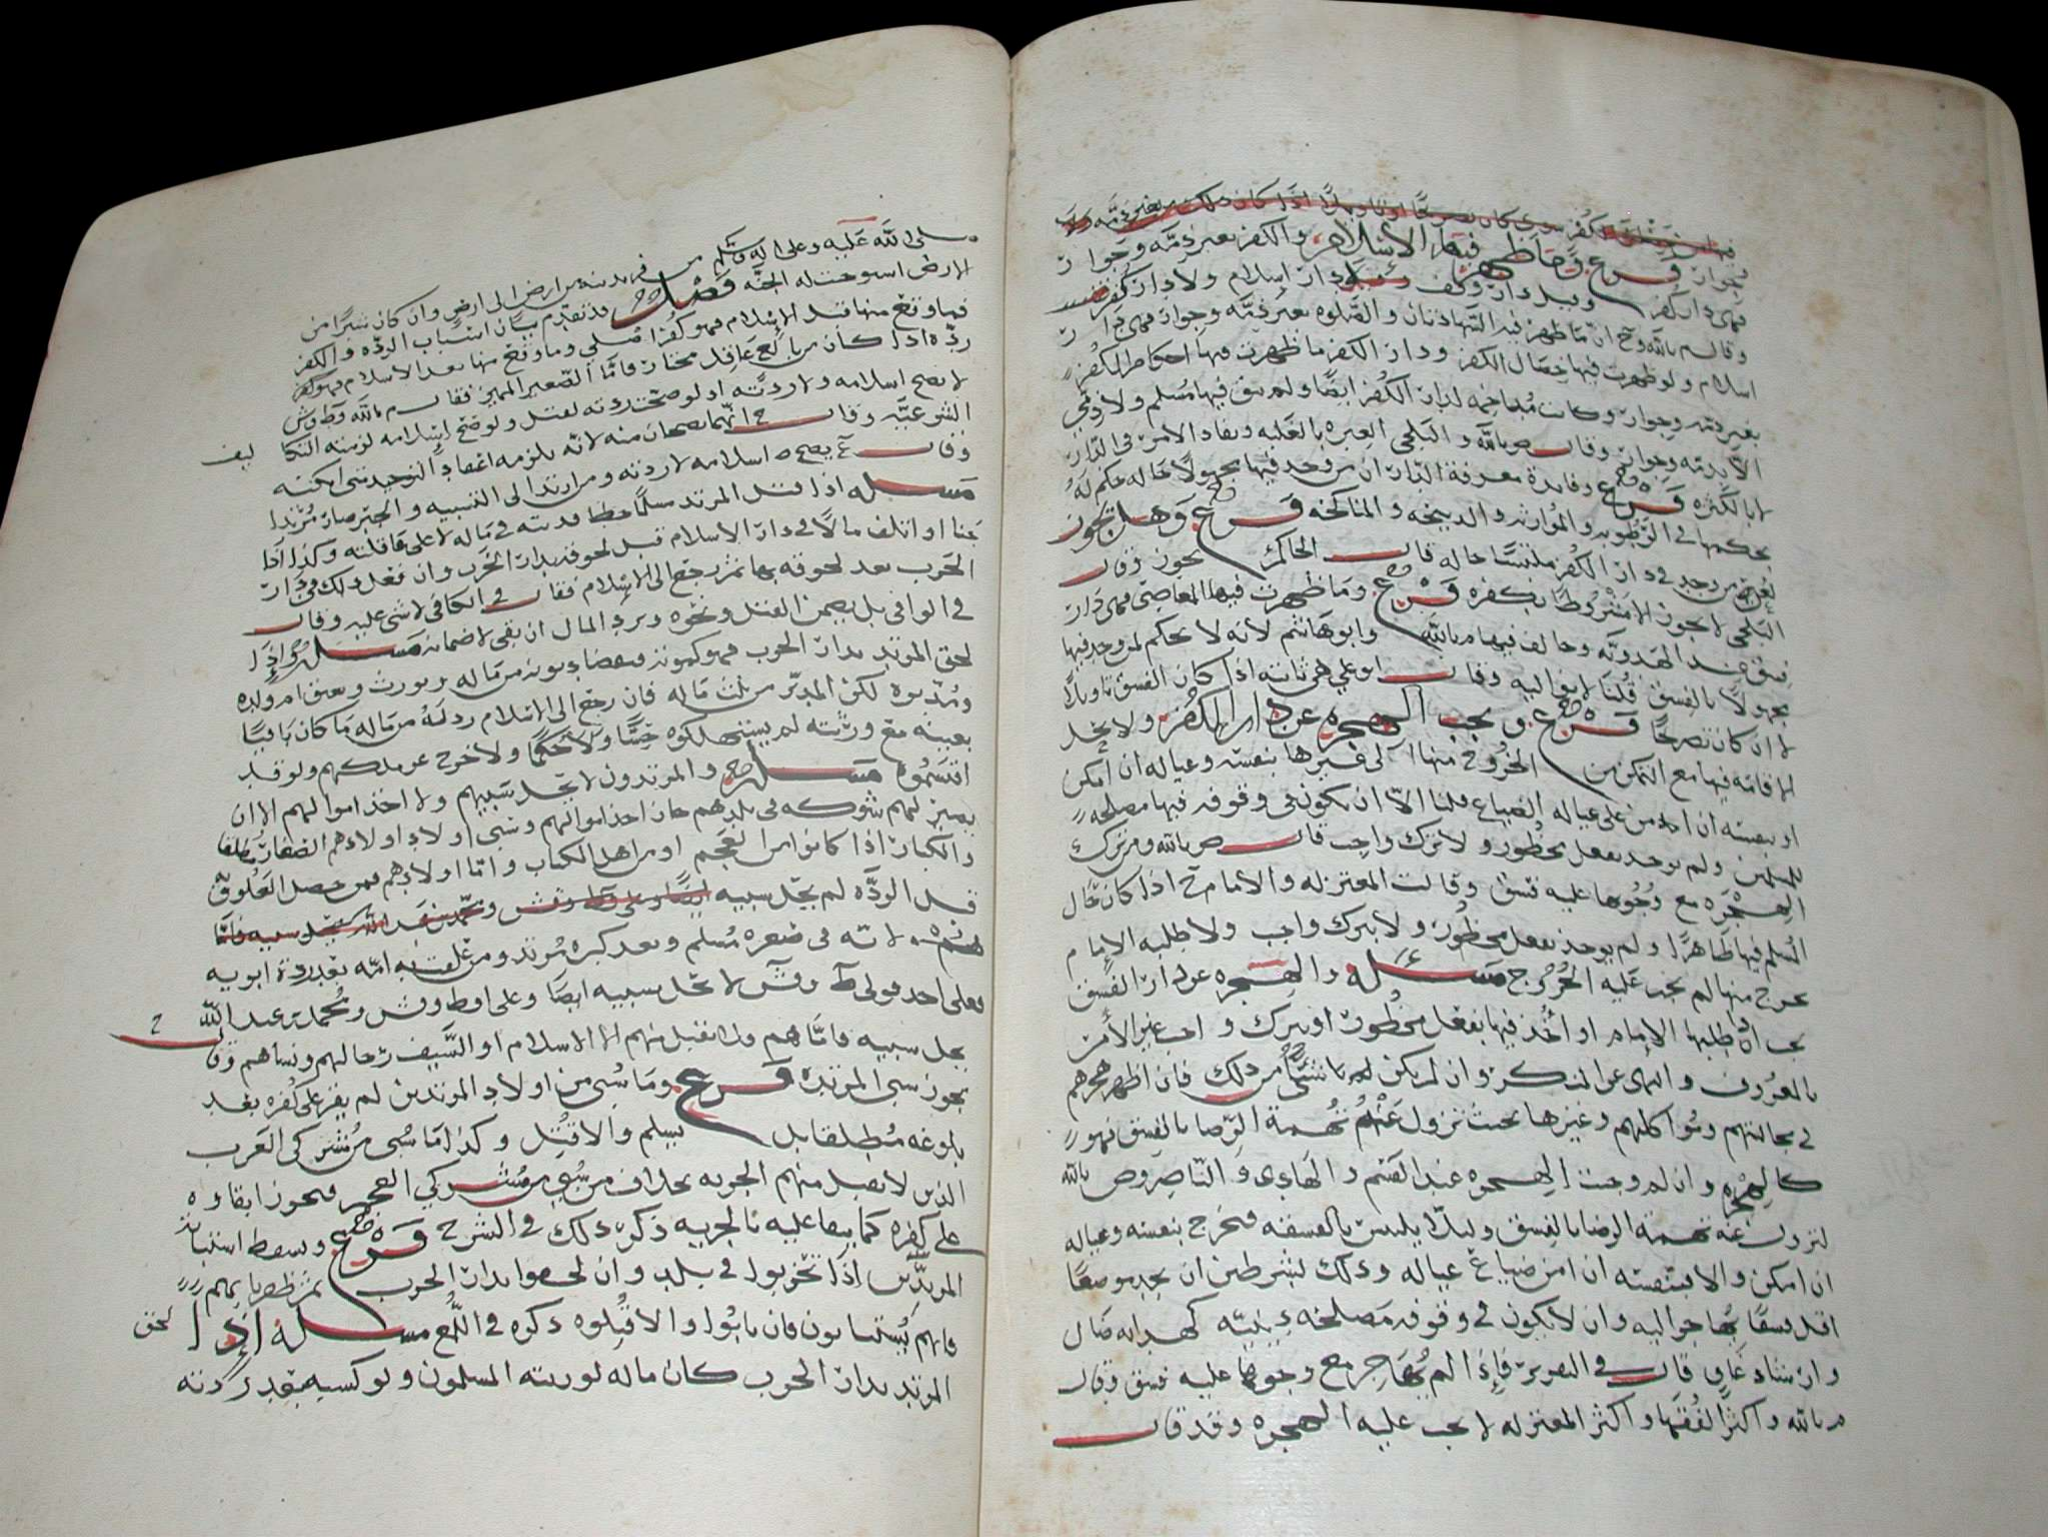 فرع وما ظهر فيها الإسلام والكفر بغير ذمة وجوار
فهي دار كفر وقيل دار وقف دار إسلام ولا دار كفر
وقال م بالله وح ان ما ظهر فيه الشهادتان والصلوه بغير ذمه وجوار فهي دار
اسلام ولو ظهرت فيها خصال الكفر ودار الكفر ما ظهرت فيها احكام الكفر
بغير ذمه وجوار وكانت متاخمه لدار الكفر ايضا ولم يبق فيها مسلم ولا ذمي
الا بذمه وجوار وقال ص بالله والبلخي العبره بالغلبه ونفاد الامر في الدار
لا بالكثره فرع وفايدة معرفة الدار ان من وجد فيها مجهولا حاله حكم له
بحكمها في الرطوبه والموارثه والذبيحه والمناكحه فرع وهل تجوز
من وجد في دار الكفر ملتبسا حاله قال الحاكم يجوز وقال
البلخي لا يجوز الا مشروطا بكفره فرع وما ظهرت فيها المعاصي فهي دار
فسق عند الهدويه وخالف فيها م بالله وابو هاشم لانه لا يحكم لمن وجد فيها
مجهولا بالفسق قلنا لا يفا اليه وقال ابو علي هي ثابته اذا كان الفسق تاويلا
لا ان كان تصريحا فرع ويجب الهجره عن دار الكفر ولا يحل
الاقامه فيها مع التمكن من الخروج منها الى غيرها بنفسه وعياله ان امكن
او بنفسه ان امن على عياله الضياع قلنا الا ان يكون في وقوفه فيها مصلحه
للمسلمين ولم يوخذ بفعل محظور ولا ترك واجب قال ص بالله ومن ترك
الهجره مع وجوبها عليه فسق وقالت المعتزله والامام ح اذا كان حال
المسلم فيها ظاهرا ولم يوخذ بفعل محظور ولا بترك واجب ولا طلبه الامام
يخرج منها لم يجب عليه الخروج مسله والهجره عن دار الفسق
يجب ان طلبها الامام او اخذ فيها بفعل محظور او بترك واجب غير الامر
بالمعروف والنهي عن المنكر وان لم يكن شي من ذلك فان اظهر هجرهم
في مجالستهم ومواكلتهم وغيرها بحيث تزول عنهم تهمة الرضا بالفسق فهو
كالهجره وان لم وجبت الهجره عند القسم والهادي والناصر وص بالله
لتزول عنه تهمة الرضا بالفسق وليلا يلتبس بالفسقه فيخرج بنفسه وعياله
ان امكن والا فبنفسه ان امن ضياع عياله وذلك بشرطين ان يجد موضعا
اقل فسقا يهاجر اليه وان لا يكون في وقوفه مصلحه دينيه كهدايه ضال
وارشاد غاو قال في التقرير فاذا لم يهاجر مع وجوبها عليه فسق وقال
م بالله واكثر الفقها واكثر المعتزله لا يجب عليه الهجره وقد قال
صلى الله عليه وعلى اله وسلم من فر بدينه من ارض الى ارض وان كان شبرا من
الارض استوجبت له الجنه فصل قد تقدم بيان اسباب الرده والكفر
فما وقع منها قبل الإسلام فهو كفر اصلي وما وقع منها بعد الاسلام فهو كفر
ردة اذا كان من بالغ عاقل مختار واما الصغير المميز فقال م بالله وط وش
لا يصح اسلامه ولا ردته اذ لو صحت ردته لقتل ولو صح اسلامه لزمته التكا
ليف
الشرعيه وقال ح انهما يصحان منه لانه يلزمه اعتقاد التوحيد متى امكنه
وقال ع يصح اسلامه لا ردته ومن ارتد الى التشبيه والجبر صار مرتدا
مسله اذا قتل المرتد مسلما خطا فديته في ماله لا على عاقلته وكذا اذا
جنا او اتلف مالا في دار الاسلام قبل لحوقه بدار الحرب وان فعل ذلك في دار
الحرب بعد لحوقه بها ثم رجع الى الاسلام فقال في الكافي لا شي عليه وقال
في الوافي بل يضمن القتل ونحوه ويرد المال ان بقي لا ضمانه مسله واذا
لحق المرتد بدار الحرب فهو كموته فيقضا ديونه من ماله ويورث ويعتق ام ولده
ومدبروه لكن المدبر من ثلث ماله فان رجع الى الاسلام رد له من ماله ما كان باقيا
بعينه مع ورثته لم يستهلكوه حسا ولا حكما ولا خرج عن ملكهم ولو قد
اقتسموه مسله والمرتدون لا يحل سبيهم ولا اخذ اموالهم الا ان
يصير لهم شوكه في بلدهم جاز اخذ اموالهم وسبي اولاد اولادهم الصغار مطلقا
والكبار اذا كانوا من العجم او من اهل الكتاب واما اولادهم فمن حصل العلوق به
قبل الرده لم يحل سبيه
لانه في صغره مسلم وبعد كبره مرتد ومن علقت به امه بعد ردة ابويه
فعلى احد قولي ط وش لا يحل سبيه ايضا وعلى احد وط وش ومحمد بن عبد الله
يحل سبيه فاما هم فلا يقبل منهم الا الاسلام او السيف رجالهم ونساهم وقال ح
يجوز سبي المرتده فرع وما سبي من اولاد المرتدين لم يقر على كفره بعد
بلوغه مطلقا بل يسلم والا قتل وكذا ما سبي من مشركي العرب
الذين لا يقبل منهم الجزيه بخلاف من سبي من مشركي العجم فيجوز ابقاوه
على كفره كما يبقا عليه بالجزيه ذكر ذلك في الشرح فرع ويسقط استتابة
المرتدين اذا تحزبوا في بلد وان لحقوا بدار الحرب ثم ظفرنا بهم
فانهم يستتابون فان تابوا والا قتلوه ذكره في اللمع مسله اذا لحق
المرتد بدار الحرب كان ماله لورثته المسلمون ولو كسبه بعد ردته